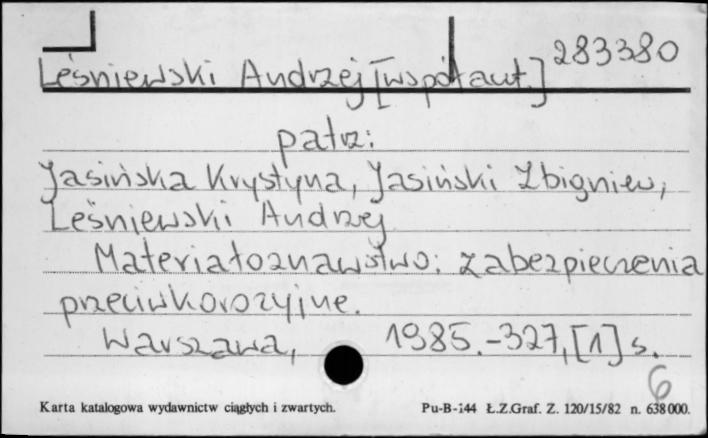 283380
Leśniewski Andrzej [współaut.]
patrz:
Jasińska Krystyna, Jasiński Zbigniew,
Leśniewski Andrzej
Materiałoznawstwo: zabezpieczenia
przeciwkorozyjne.
Warszawa, 1985.-327,[1] s.
6
Karta katalogowa wydawnictw ciągłych i zwartych. Pu-B-144 Ł.Z.Graf. Z. 120/15/82 n. 638 000.